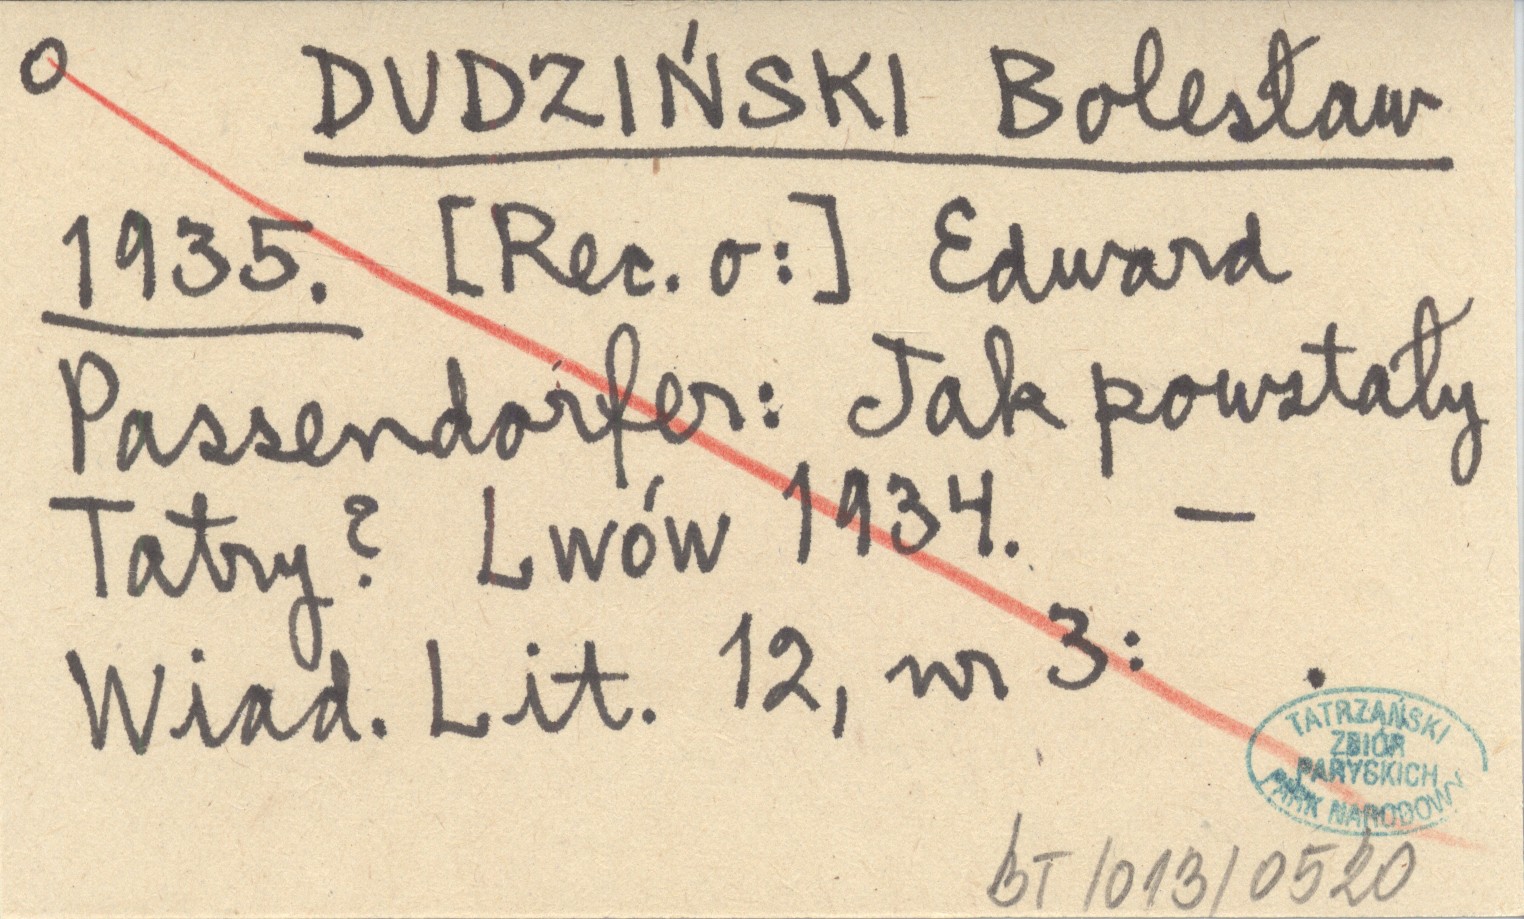 o DUDZIŃSKI Bolesław
1935. [Rec. o:] Edward
Passendorfer: Jak powstały
Tatry? Lwów 1934. —
Wiad. Lit. 12, nr 3: .
TATRZAŃSKI
ZBIÓR
PARYSKICH
PARK NARODOWY
BT/013/0520